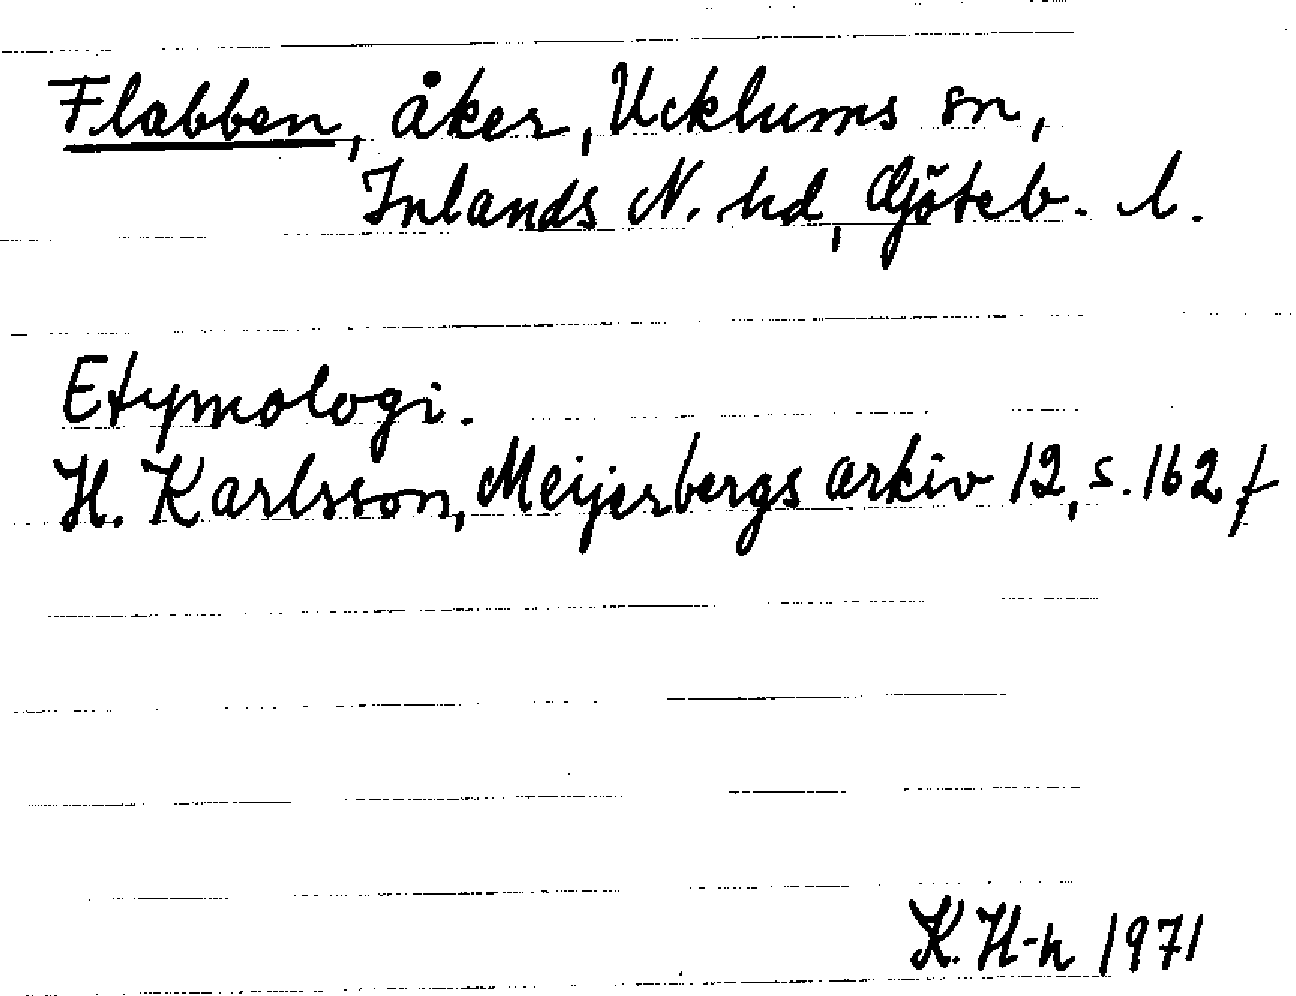 Flabben, åker, Ucklums sn,
Inlands N. hd, Göteb. l.
Etymologi.
H. Karlsson, Meijerbergs arkiv 12, s. 162 f
K. H-n 1971